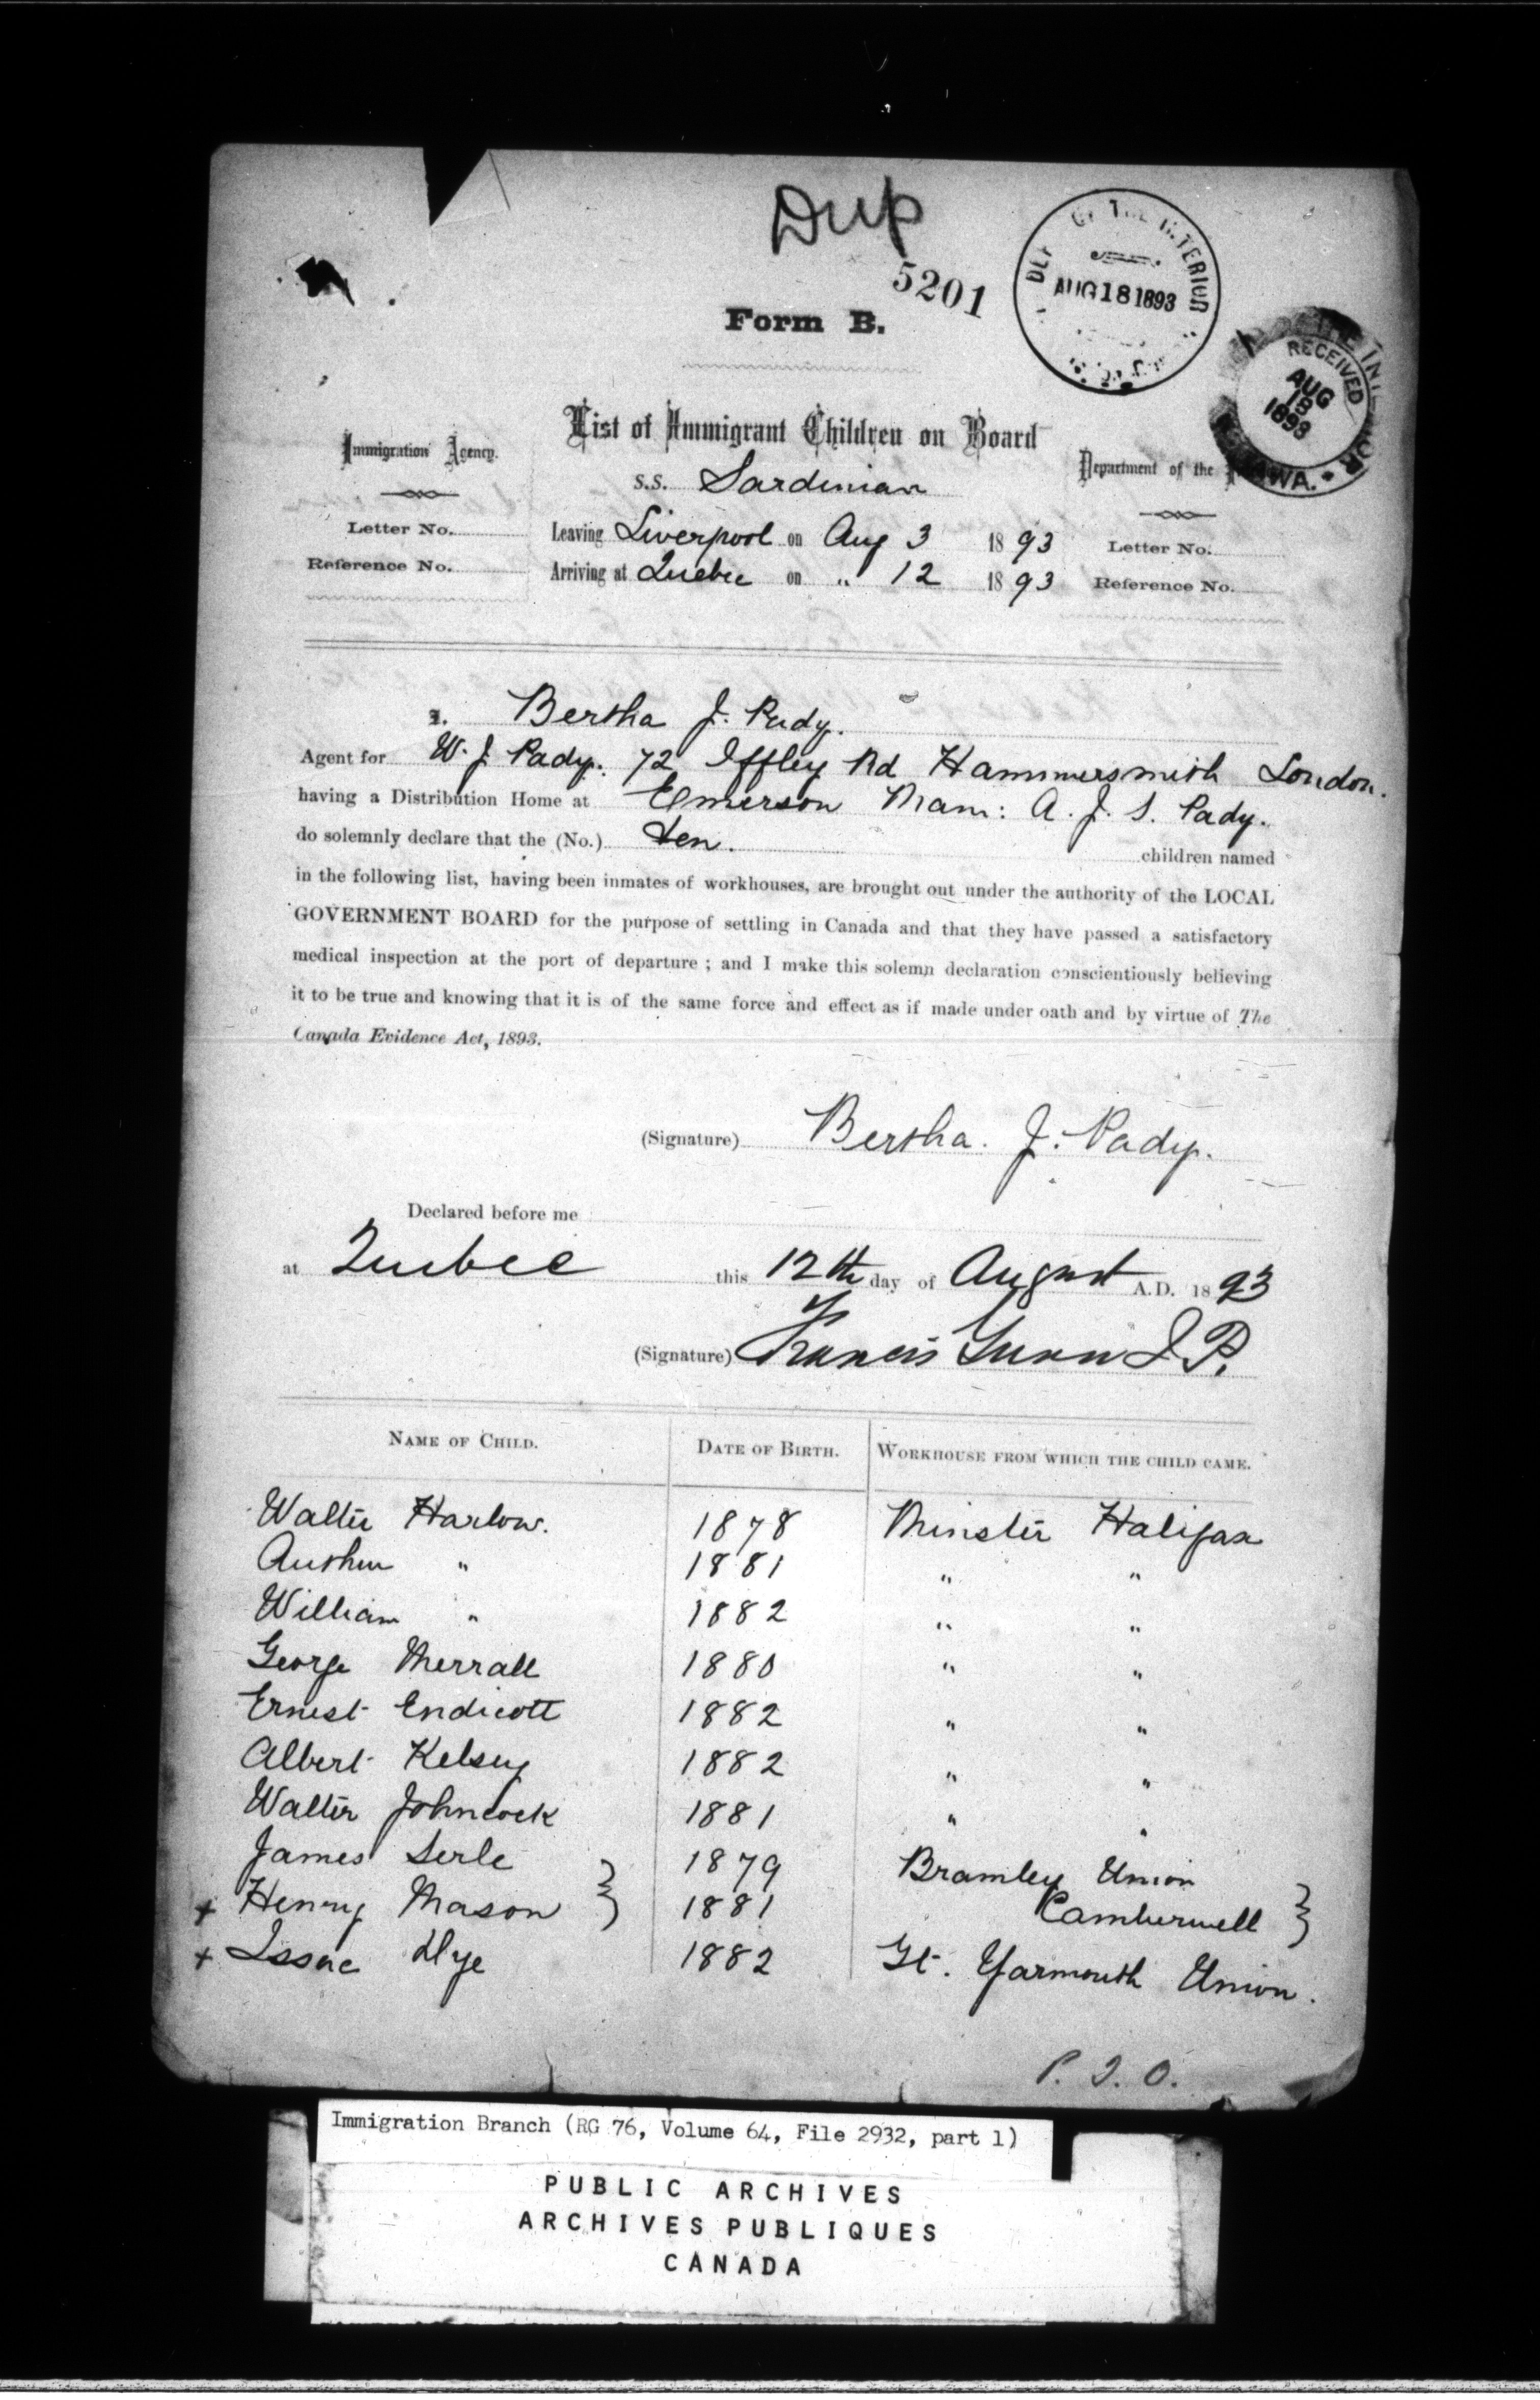 Dup
5201
DEP OF THE INTERIOR
AUG 18 1893
Form B.
RECEIVED
AUG
18
1893
List of Immigrant Children on Board
Immigration Agency.
Department of the
s.s. Sardinian
Letter No.
Leaving Liverpool on Aug 3 1893
Letter No.
Reference No.
Arriving at Quebec on " 12 1893
Reference No.
I. Bertha J. Pady.
Agent for W. J. Pady. 72 Iffley Rd Hammersmith London.
having a Distribution Home at Emerson Mam: A. J. S. Pady.
do solemnly declare that the (No.) ten. children named
in the following list, having been inmates of workhouses, are brought out under the authority of the LOCAL
GOVERNMENT BOARD for the purpose of settling in Canada and that they have passed a satisfactory
medical inspection at the port of departure ; and I make this solemn declaration conscientiously believing
it to be true and knowing that it is of the same force and effect as if made under oath and by virtue of The
Canada Evidence Act, 1893.
(Signature) Bertha. J. Pady.
Declared before me
at Quebec this 12th day of August A.D. 1893
(Signature) Francis Gunn J.P.
NAME OF CHILD. DATE OF BIRTH. WORKHOUSE FROM WHICH THE CHILD CAME.
Walter Harlow. 1878 Minster Halifax
Authur " 1881 " "
William " 1882 " "
George Merrall 1880 " "
Ernest Endicott 1882 " "
Albert Kelsey 1882 " "
Walter Johncock 1881 " "
James Serle } 1879 Bramley Union
+ Henry Mason } 1881 Camberwell }
+ Issac Dye 1882 Gt. Yarmouth Union.
P.T.O.
Immigration Branch (RG 76, Volume 64, File 2932, part 1)
PUBLIC ARCHIVES
ARCHIVES PUBLIQUES
CANADA